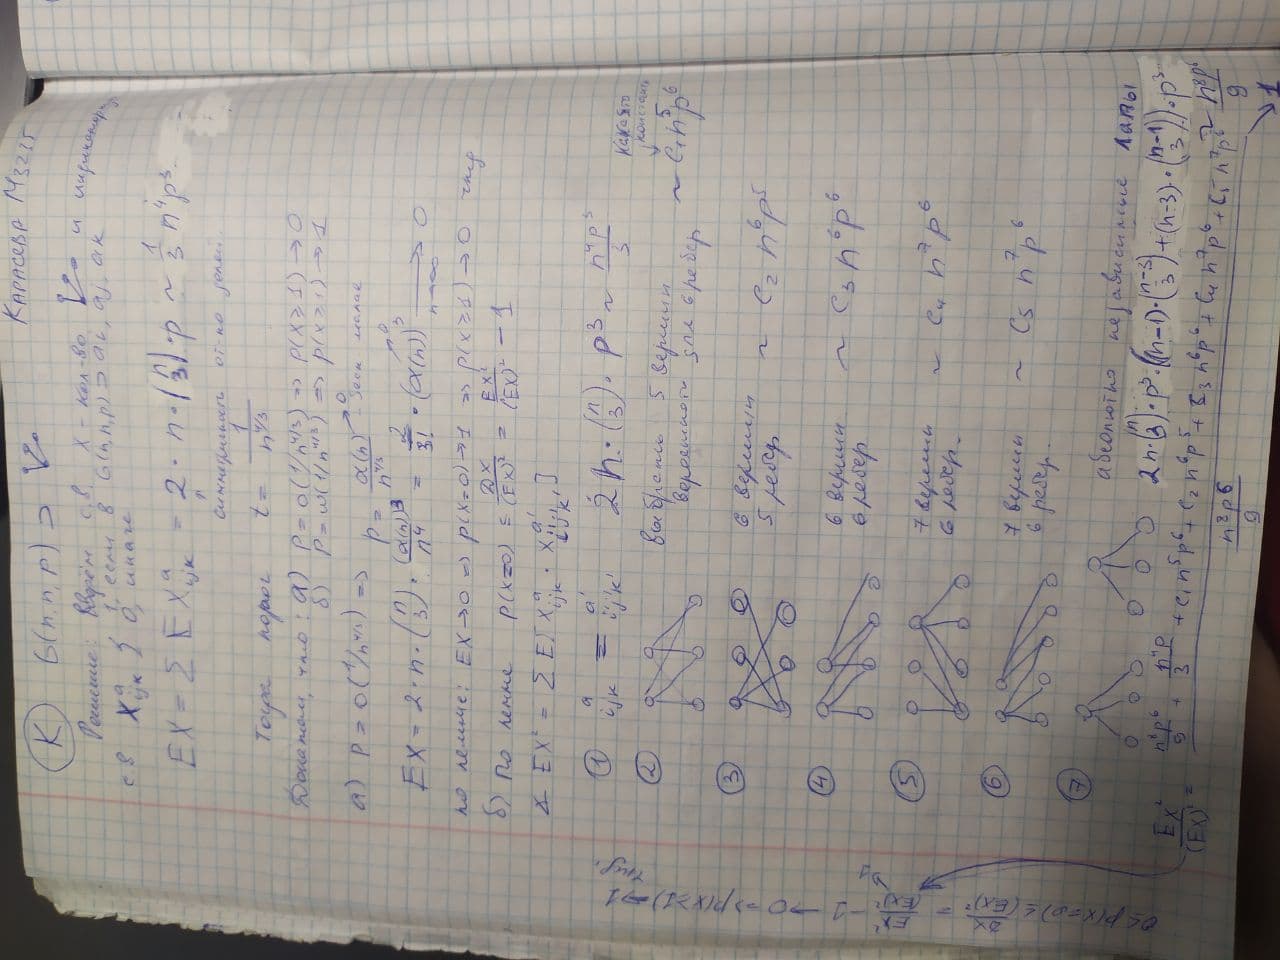 Карасева М3235
К G(n,n,p) ⊃
Решение: Введём с.в. X - кол-во и индикаторную
с.в. X^a_{ijk} { 1, если в G(n,n,p) ⊃ ai, aj, ak
0, иначе
EX = Σ E X^a_{ijk} = 2 · n · (n 3) · p ~ 1/3 n^4 p^3
симметричность от-но долей.
Тогда порог t = 1/n^{4/3}
Докажем, что: а) p = o(1/n^{4/3}) => P(X≥1) → 0
б) p = ω(1/n^{4/3}) => P(X≥1) → 1
а) p = o(1/n^{4/3}) => p = α(n)/n^{4/3} → 0 - беск малая
EX = 2 · n · (n 3) · (α(n))^3/n^4 = 2/3! · (α(n))^3 → 0 n→∞
по лемме: EX → 0 => P(X=0) → 1 => P(X≥1) → 0 чтд
б) По лемме P(X=0) ≤ DX/(EX)^2 = EX^2/(EX)^2 - 1
∢ EX^2 = Σ E[X^a_{ijk} · X^{a'}_{i'j'k'}]
1 a ijk = a' i'j'k' 2n · (n 3) · p^3 ~ n^4p^3/3
какая-то константа
2 выбрать 5 вершин
вероятность для 6 ребер ~ C1 n^5 p^6
3 6 вершин
5 ребер ~ C2 n^6 p^5
4 6 вершин
6 ребер ~ C3 n^6 p^6
5 7 вершин
6 ребер. ~ C4 n^7 p^6
6 7 вершин
6 ребер. ~ C5 n^7 p^6
7 абсолютно независимые лапы
2n · (n 3) · p^3 · ((n-1) · (n-3 3) + (n-3) · (n-1 3)) · p^3 ~ n^8p^6/9
EX^2/(EX)^2 = (n^8p^6/9 + n^4p/3 + C1n^5p^6 + C2n^6p^5 + C3n^6p^6 + C4n^7p^6 + C5n^7p^6) / (n^8p^6/9) → 1
0 ≤ P(X=0) ≤ DX/(EX)^2 = EX^2/(EX)^2 - 1 → 0 => P(X≥1) → 1 чтд.